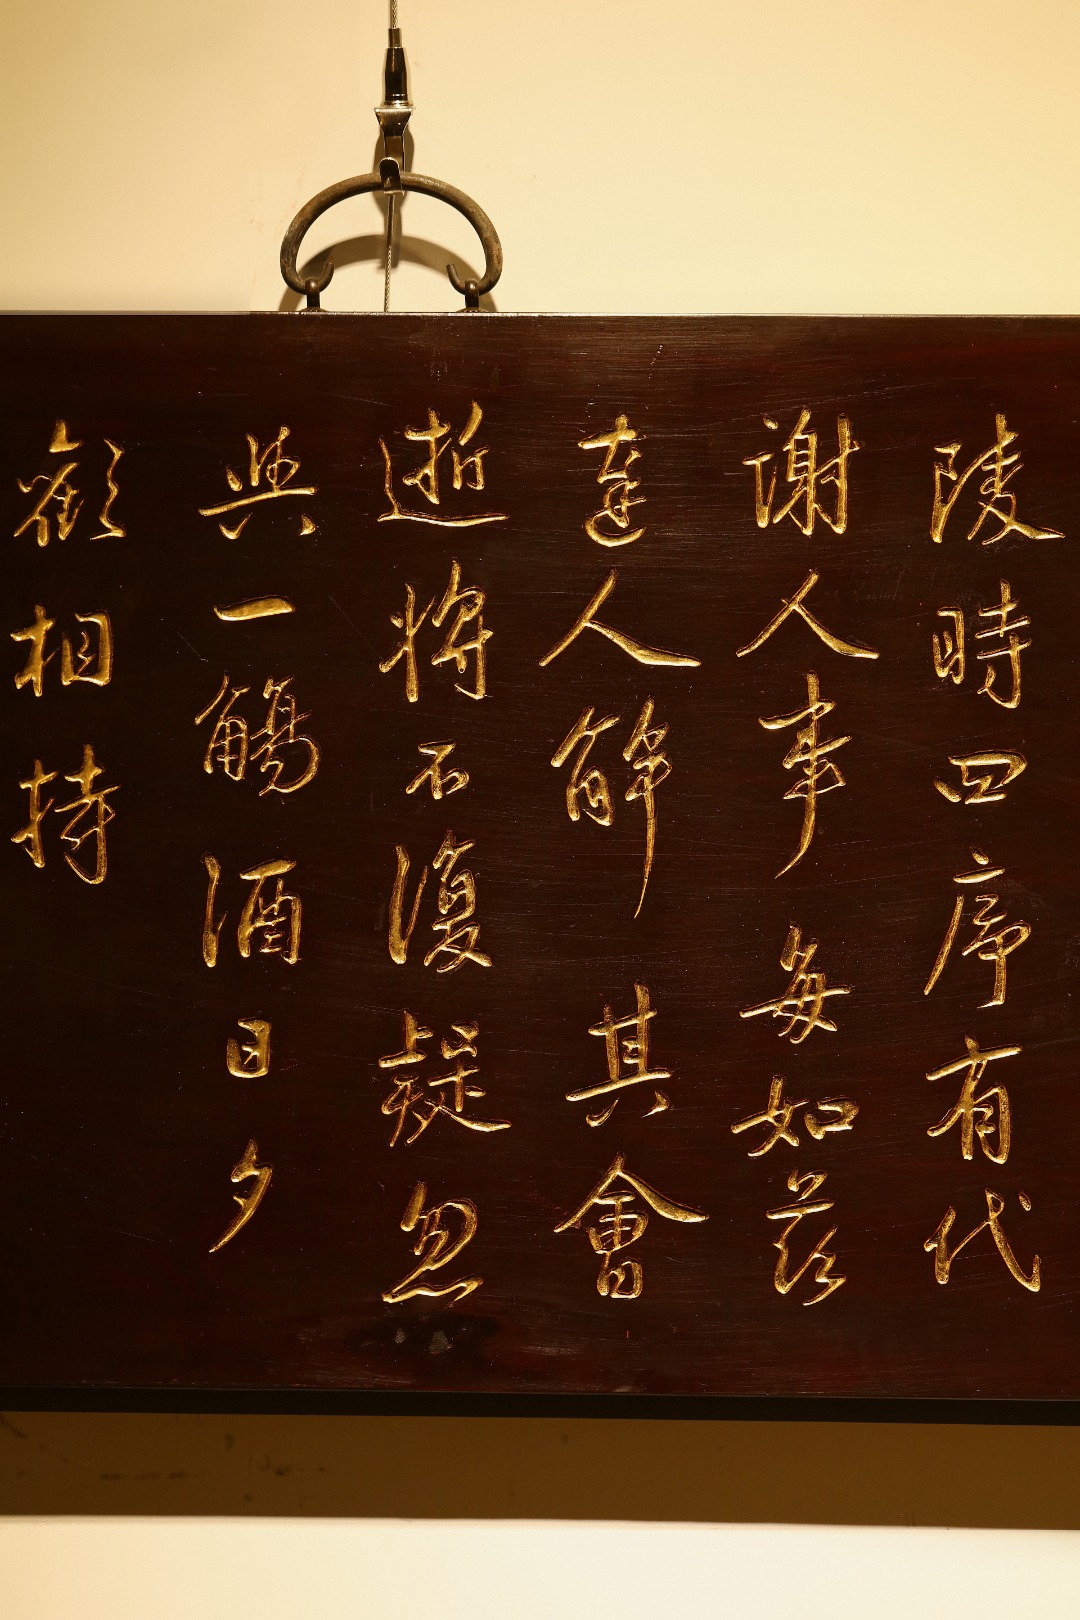 陵時四序有代
謝人事每如茲
達人解其會
逝將不復疑忽
與一觴酒日夕
歡相持